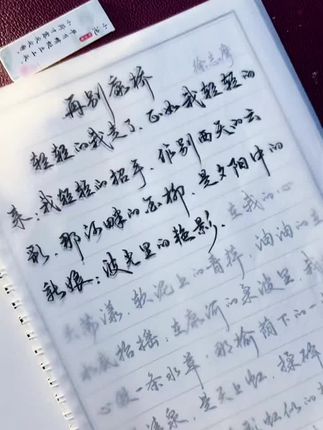 再别康桥
徐志摩
轻轻的我走了，正如我轻轻的
来；我轻轻的招手，作别西天的云
彩。那河畔的金柳，是夕阳中的
新娘；波光里的艳影，在我的心
头荡漾。软泥上的青荇，油油的在
水底招摇；在康河的柔波里，我
心做一条水草，那榆荫下的一
清泉，是天上虹，揉碎
似的